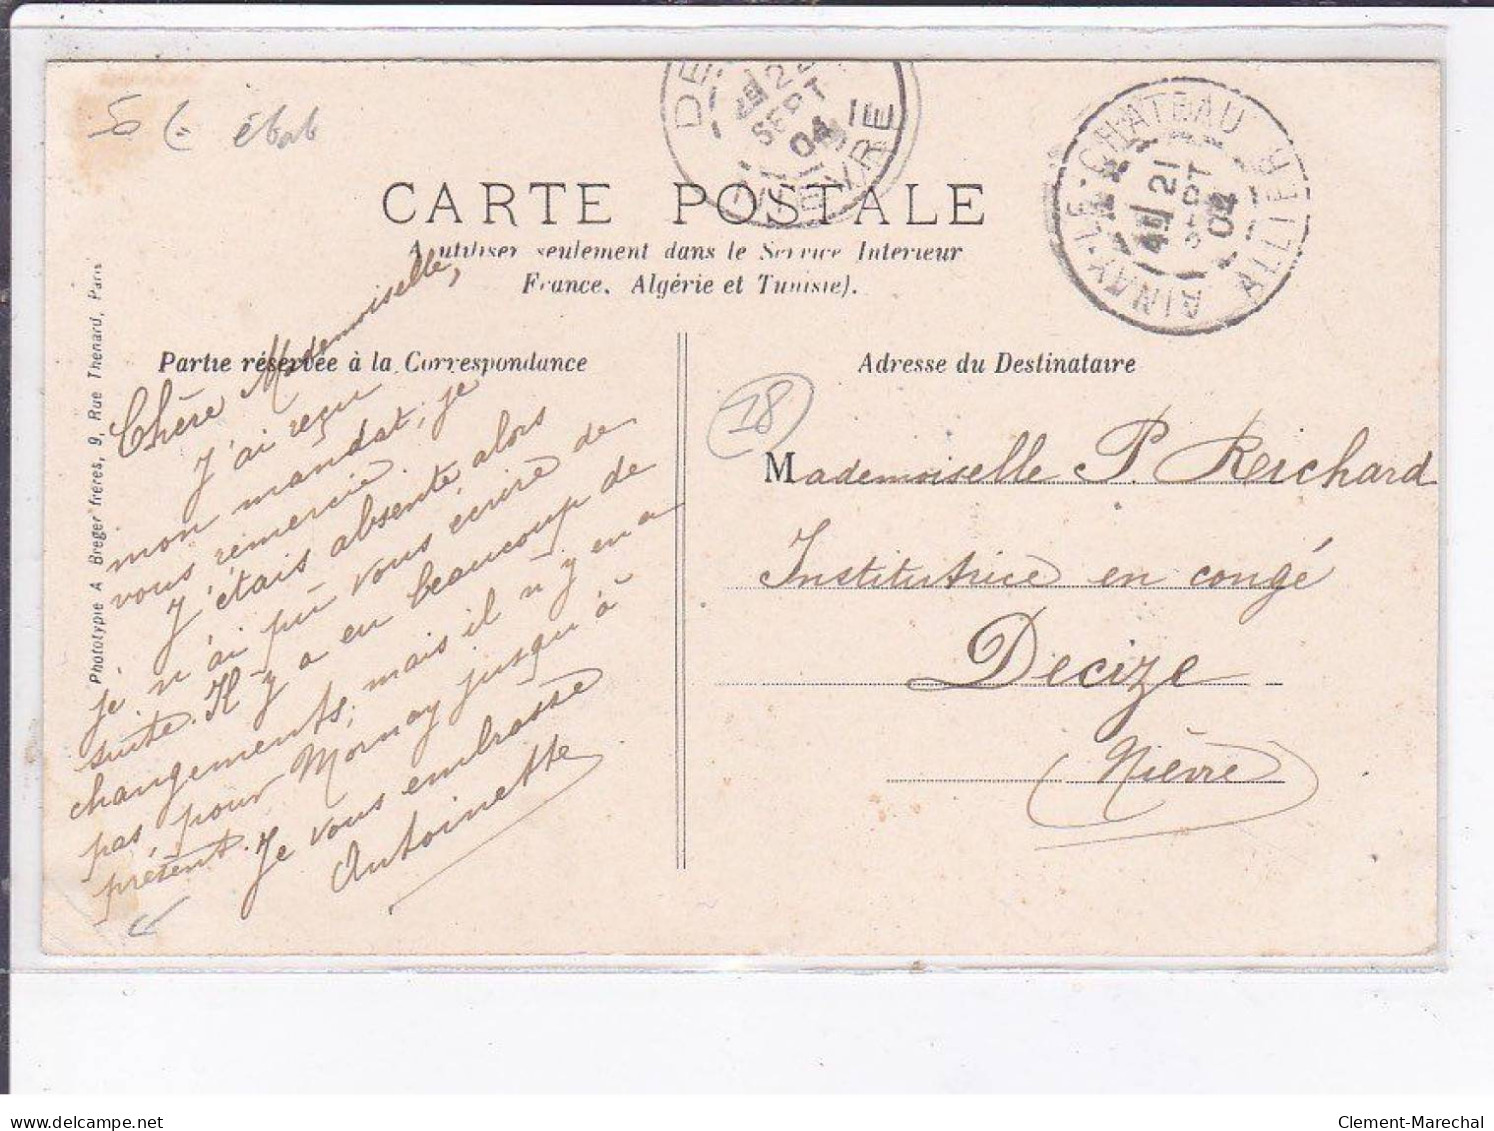 50 €
état
CARTE POSTALE
A utiliser seulement dans le Service Interieur
France, Algérie et Tunisie).
AINAY-LE-CHATEAU
ALLIER
21
SEPT
04
SEPT
04
Partie réservée à la Correspondance
Adresse du Destinataire
Phototypie A Breger frères, 9, Rue Thenard, Paris
Chère Mademoiselle,
J'ai reçu
mon mandat, je
vous remercie
J'étais absente, alors
je n'ai pu vous écrire de
suite. Il y a eu beaucoup de
changements, mais il n'y en a
pas pour Mornay jusqu'à
présent. Je vous embrasse
Antoinette
18
Mademoiselle P. Reichard
Institutrice en congé
Decize
(Nièvre)
delcampe.net
Clement-Marechal